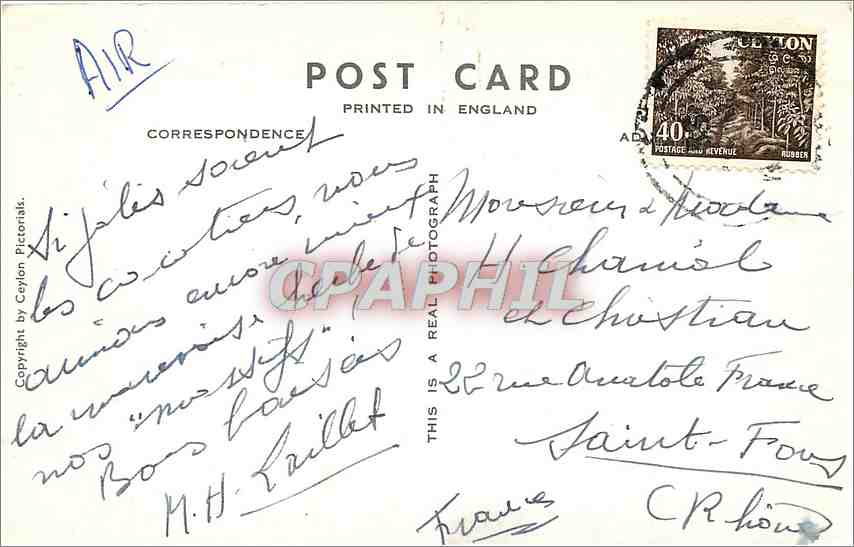 AIR
POST CARD
PRINTED IN ENGLAND
CORRESPONDENCE
CEYLON
40
POSTAGE AND REVENUE
RUBBER
Copyright by Ceylon Pictorials.
THIS IS A REAL PHOTOGRAPH
CPAPHIL
Si jolis soient
les cocotiers, nous
aimions encore mieux
la mauvaise herbe de
nos "massifs" !
Bons baisers
M.H. Laillet
Monsieur & Madame
H Chaniol
et Christian
22 rue Anatole France
Saint-Fons
(Rhône
France